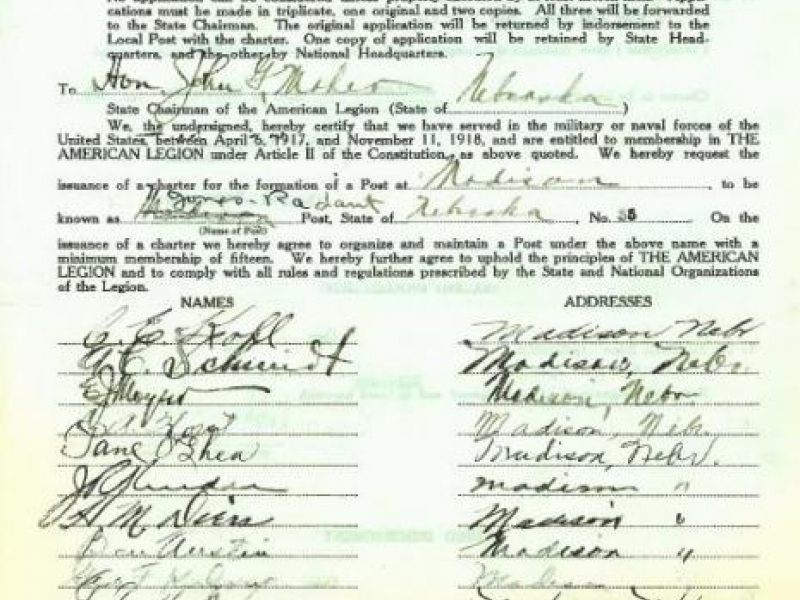 cations must be made in triplicate, one original and two copies. All three will be forwarded
to State Chairman. The original application will be returned by indorsement to the
Local Post with the charter. One copy of application will be retained by State Head-
quarters, and the other by National Headquarters.
To Hon. John G. Maher Nebraska
State Chairman of the American Legion (State of )
We, the undersigned, hereby certify that we have served in the military or naval forces of the
United States between April 6, 1917, and November 11, 1918, and are entitled to membership in THE
AMERICAN LEGION under Article II of the Constitution, as above quoted. We hereby request the
issuance of a charter for the formation of a Post at Madison, to be
Jones-Radant
known as Madison Post, State of Nebraska, No. 35 On the
(Name of Post)
issuance of a charter we hereby agree to organize and maintain a Post under the above name with a
minimum membership of fifteen. We hereby further agree to uphold the principles of THE AMERICAN
LEGION and to comply with all rules and regulations prescribed by the State and National Organizations
of the Legion.
NAMES ADDRESSES
Madison Nebr
Schmidt Madison, Nebr.
Madison, Nebr
Madison, Nebr.
Jane O'Shea Madison, Nebr.
Madison "
Madison "
Ben Austin Madison "
Madison